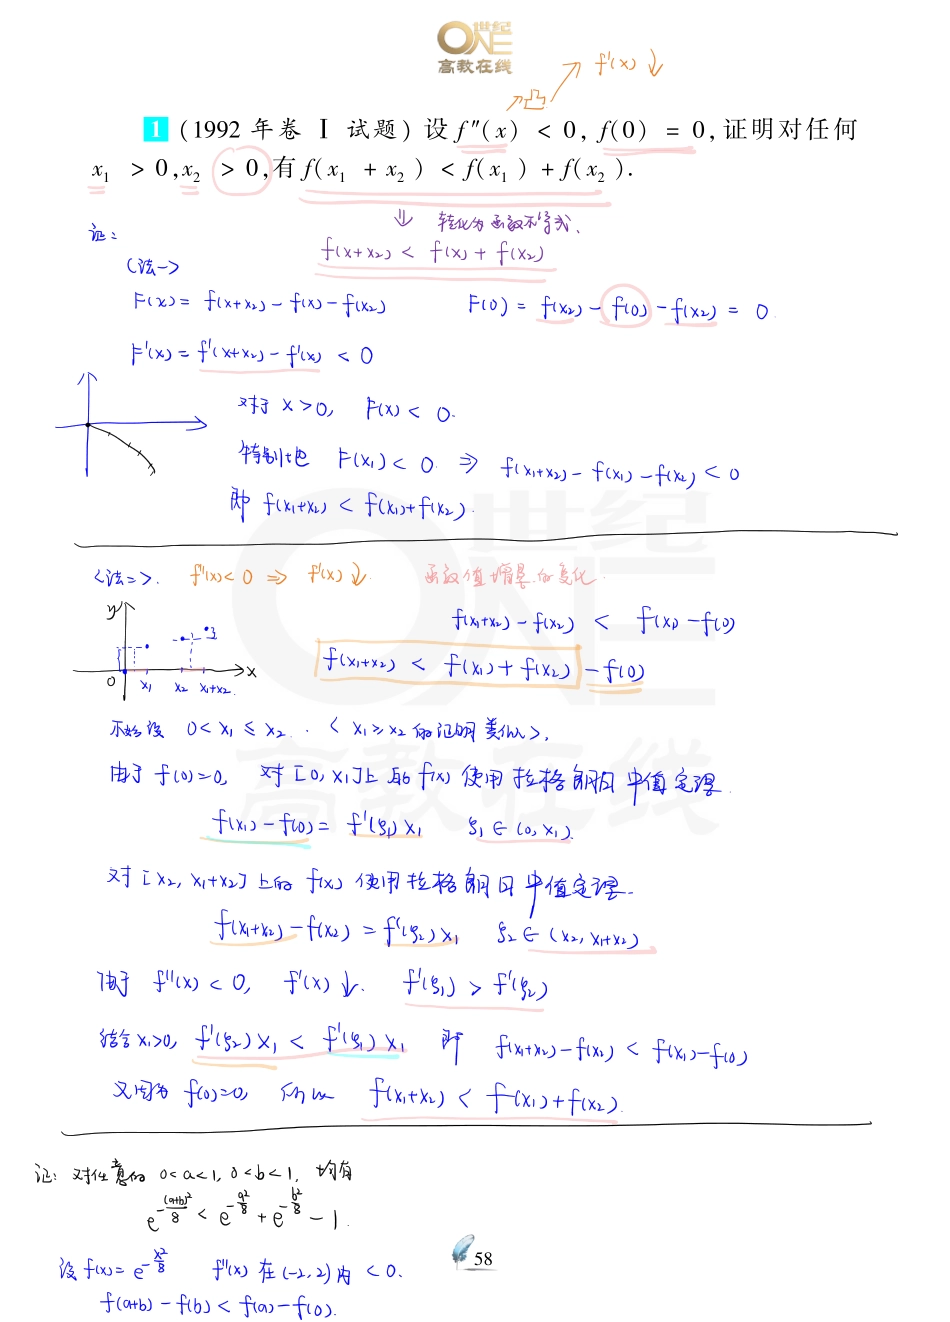 世纪
ONE
高教在线
f'(x)↓
↗凸
1 (1992 年卷 Ⅰ 试题) 设 f″(x) < 0, f(0) = 0, 证明对任何
x₁ > 0, x₂ > 0, 有 f(x₁ + x₂) < f(x₁) + f(x₂).
⇓ 转化为函数不等式.
证:
f(x+x₂) < f(x) + f(x₂)
(法一)
F(x) = f(x+x₂) - f(x) - f(x₂) F(0) = f(x₂) - f(0) - f(x₂) = 0.
F'(x) = f'(x+x₂) - f'(x) < 0
对于 x>0, F(x) < 0.
特别地 F(x₁) < 0. ⇒ f(x₁+x₂) - f(x₁) - f(x₂) < 0
即 f(x₁+x₂) < f(x₁)+f(x₂).
<法二>. f''(x)<0 ⇒ f'(x)↓. 函数值增量的变化.
y
f(x₁+x₂) - f(x₂) < f(x₁) - f(0)
f(x₁+x₂) < f(x₁) + f(x₂) - f(0)
0 x₁ x₂ x₁+x₂ x
不妨设 0 < x₁ ≤ x₂. <x₁ ≥ x₂ 的证明类似>.
由于 f(0)=0, 对[0, x₁]上的 f(x) 使用拉格朗日中值定理.
f(x₁) - f(0) = f'(ξ₁) x₁ ξ₁ ∈ (0, x₁).
对[x₂, x₁+x₂]上的 f(x) 使用拉格朗日中值定理.
f(x₁+x₂) - f(x₂) = f'(ξ₂) x₁ ξ₂ ∈ (x₂, x₁+x₂)
由于 f''(x) < 0, f'(x)↓. f'(ξ₁) > f'(ξ₂)
结合 x₁>0, f'(ξ₂) x₁ < f'(ξ₁) x₁ 即 f(x₁+x₂) - f(x₂) < f(x₁) - f(0)
又因为 f(0)=0, 所以 f(x₁+x₂) < f(x₁)+f(x₂).
证: 对任意的 0<a<1, 0<b<1, 均有
e^{-(a+b)²/8} < e^{-a²/8} + e^{-b²/8} - 1.
58
设 f(x) = e^{-x²/8} f''(x) 在 (-2,2) 内 < 0.
f(a+b) - f(b) < f(a) - f(0).